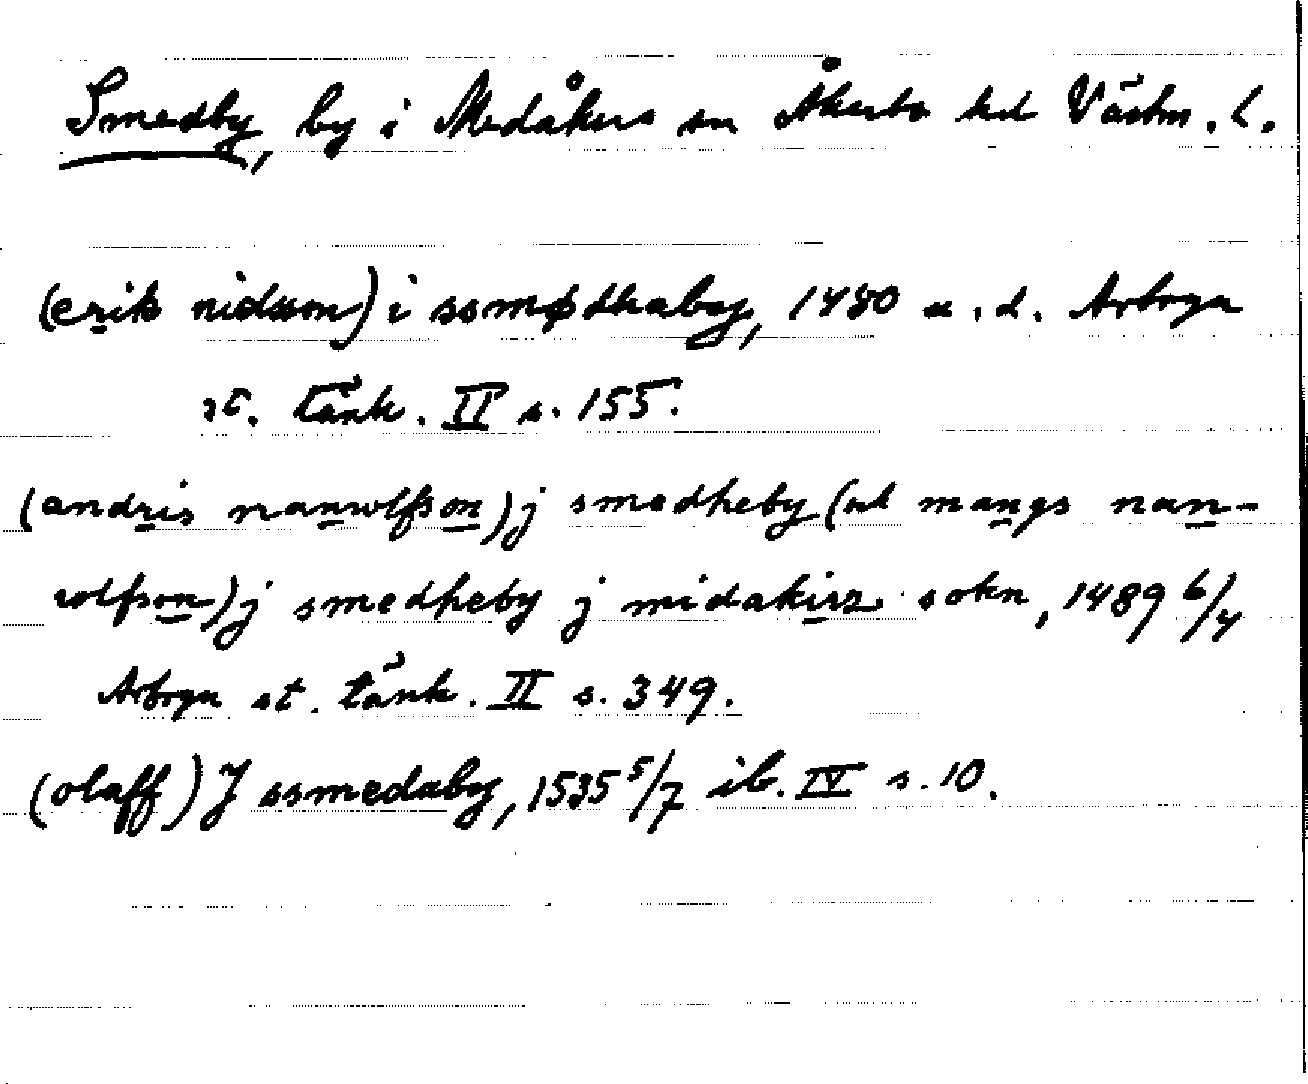 Smedby, by i Medåkers sn Åkerbo hd Västm. l.
(erik nidsson) i ssmødhaby, 1480 u. d. Arboga
st. tänk. II s. 155.
(andris nanwlfson) j smedheby (ok mangs nan-
wlfson) j smedheby j midakirs sokn, 1489 6/4
Arboga st. tänk. II s. 349.
(olaff) J ssmedaby, 1535 5/7 ib. IV s. 10.